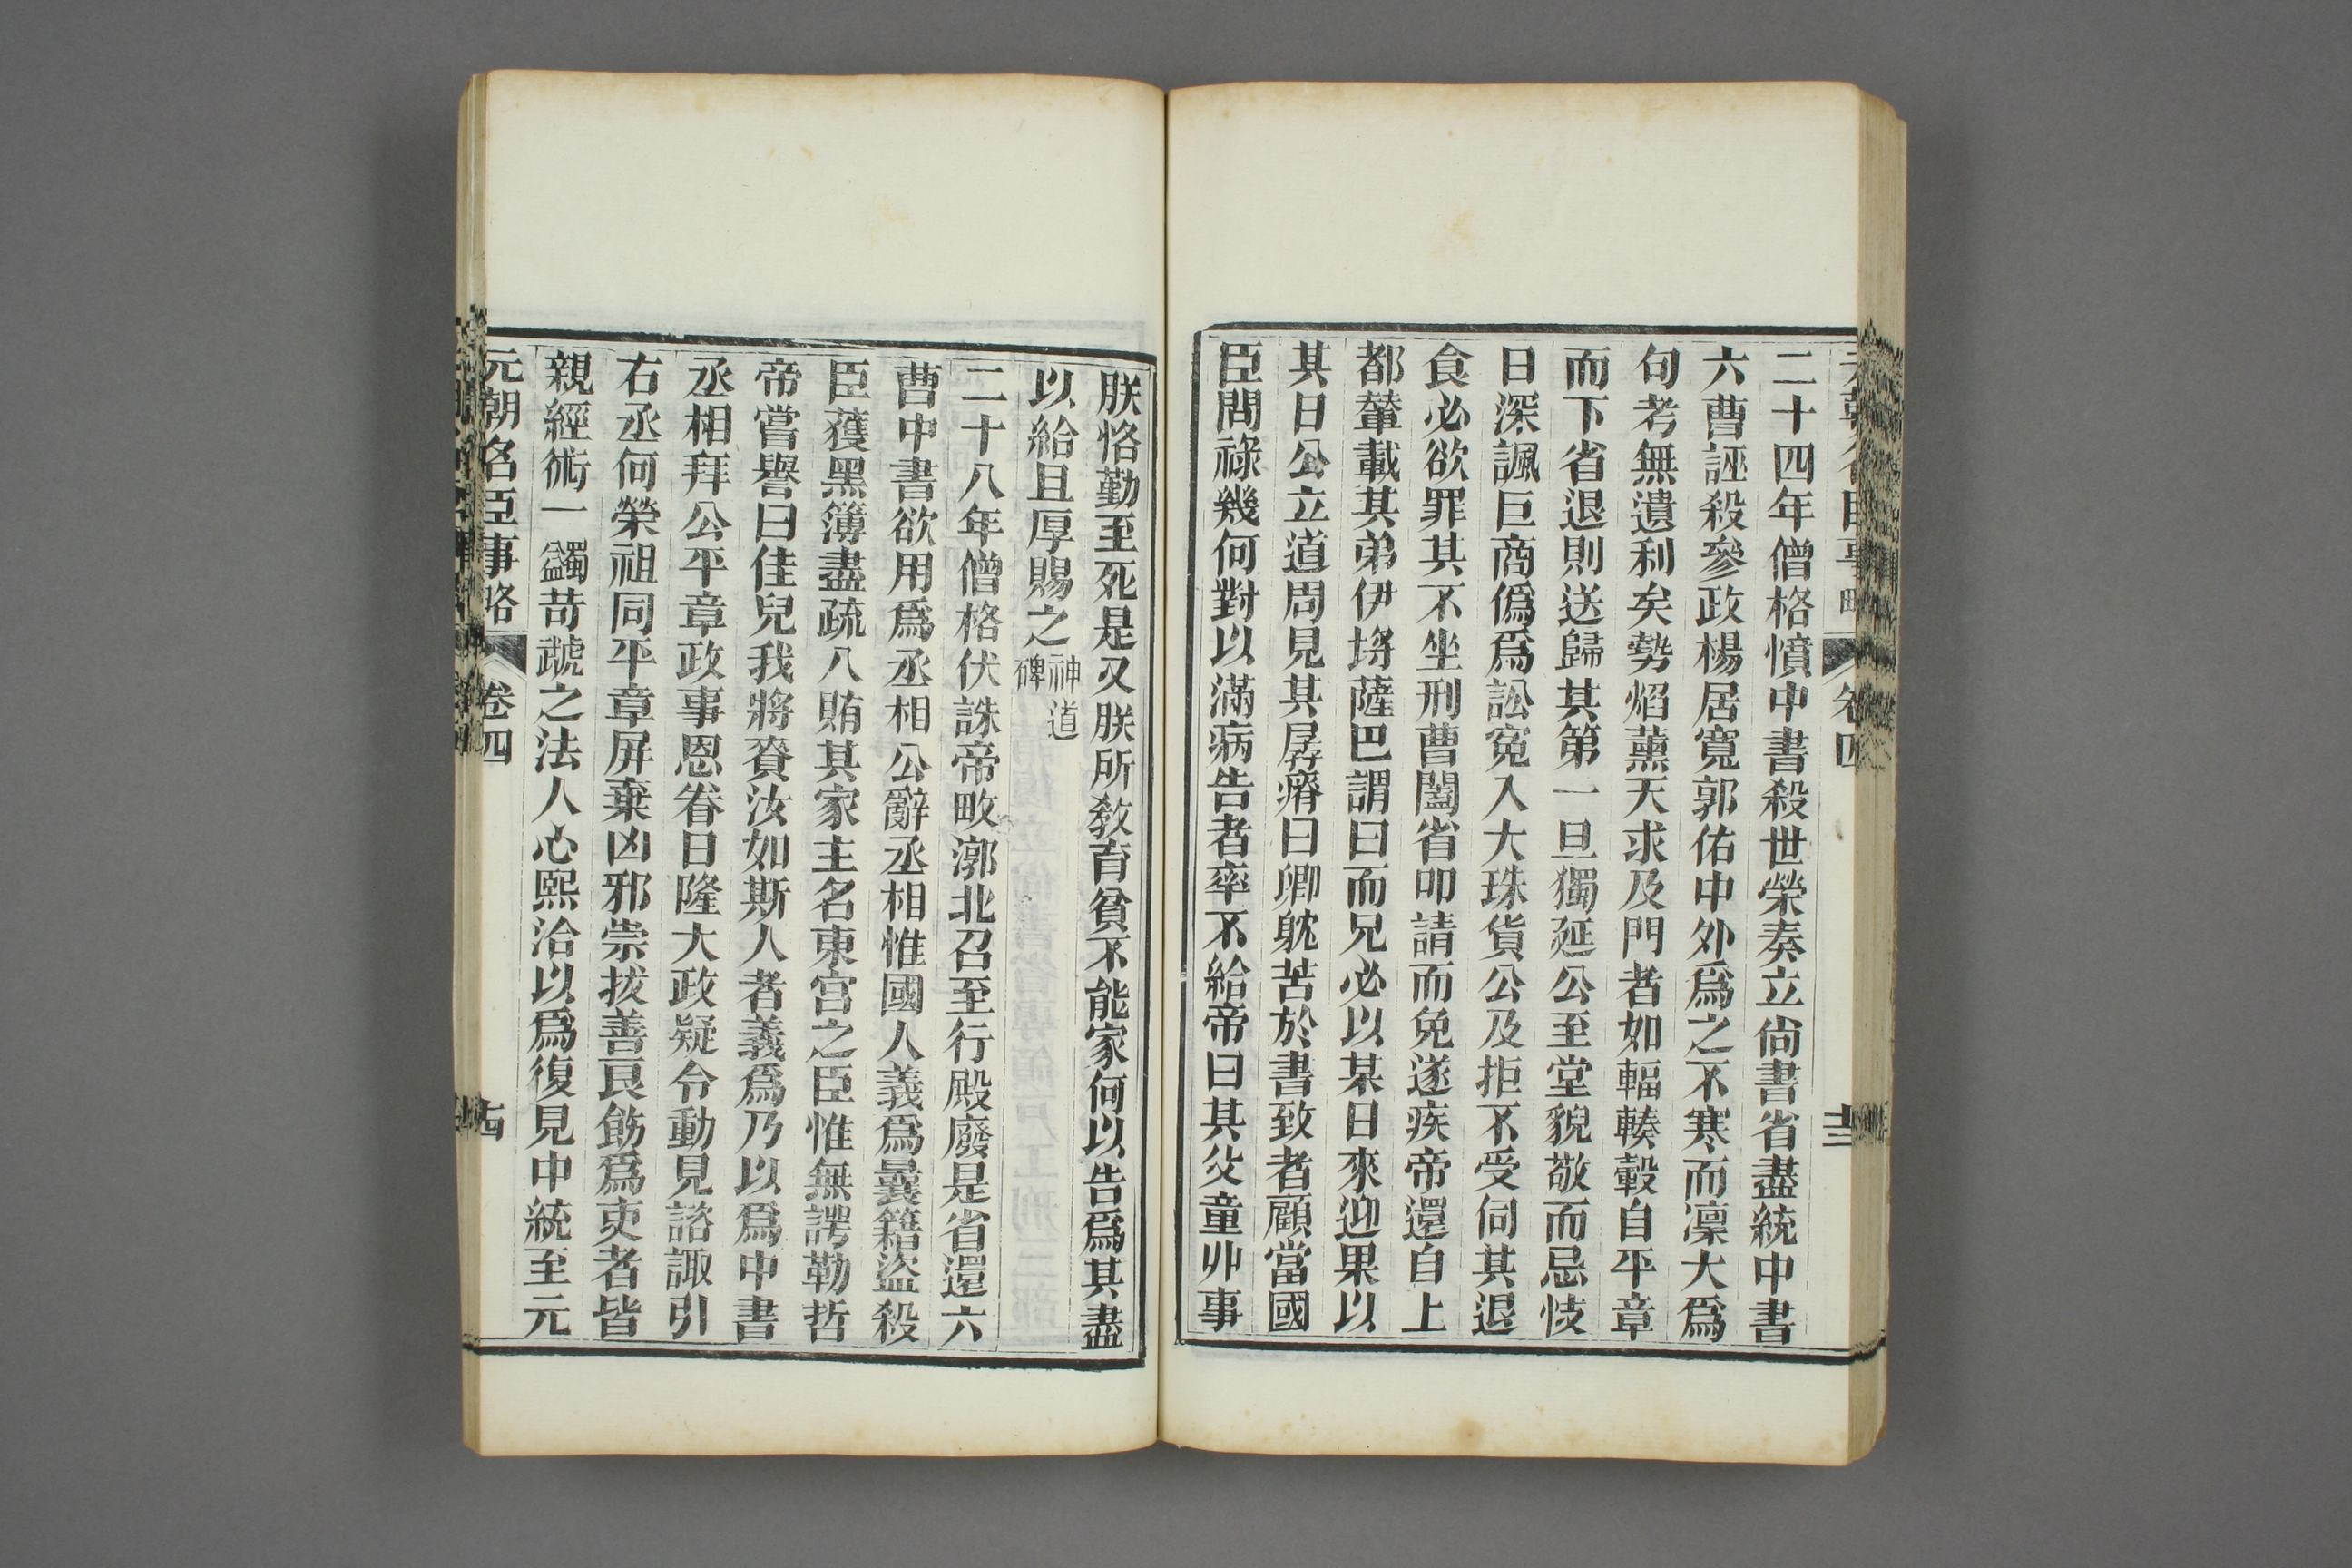 二十四年僧格憤中書殺世榮奏立尙書省盡統中書
六曹誣殺參政楊居寬郭佑中外爲之不寒而凜大爲
句考無遺利矣勢焰薰天求及門者如輻輳轂自平章
而下省退則送歸其第一旦獨延公至堂貌敬而忌忮
日深諷巨商僞爲訟寃入大珠貨公及拒不受伺其退
食必欲罪其不坐刑曹闔省叩請而免遂疾帝還自上
都輦載其弟伊埒薩巴謂曰而兄必以某日來迎果以
其日公立道周見其孱瘠曰卿躭苦於書致者顧當國
臣問祿幾何對以滿病告者率不給帝曰其父童丱事
朕恪勤至死是又朕所敎育貧不能家何以吿爲其盡
以給且厚賜之神道碑
二十八年僧格伏誅帝畋漷北召至行殿廢是省還六
曹中書欲用爲丞相公辭丞相惟國人義爲曩籍盜殺
臣獲黑簿盡疏八賄其家主名東宮之臣惟無諤勒哲
帝嘗譽曰佳兒我將賚汝如斯人者義爲乃以爲中書
丞相拜公平章政事恩眷日隆大政疑令動見諮諏引
右丞何榮祖同平章屏棄凶邪崇拔善良飭爲吏者皆
親經術一蠲苛虣之法人心熙洽以爲復見中統至元
元朝名臣事略 卷四 十四